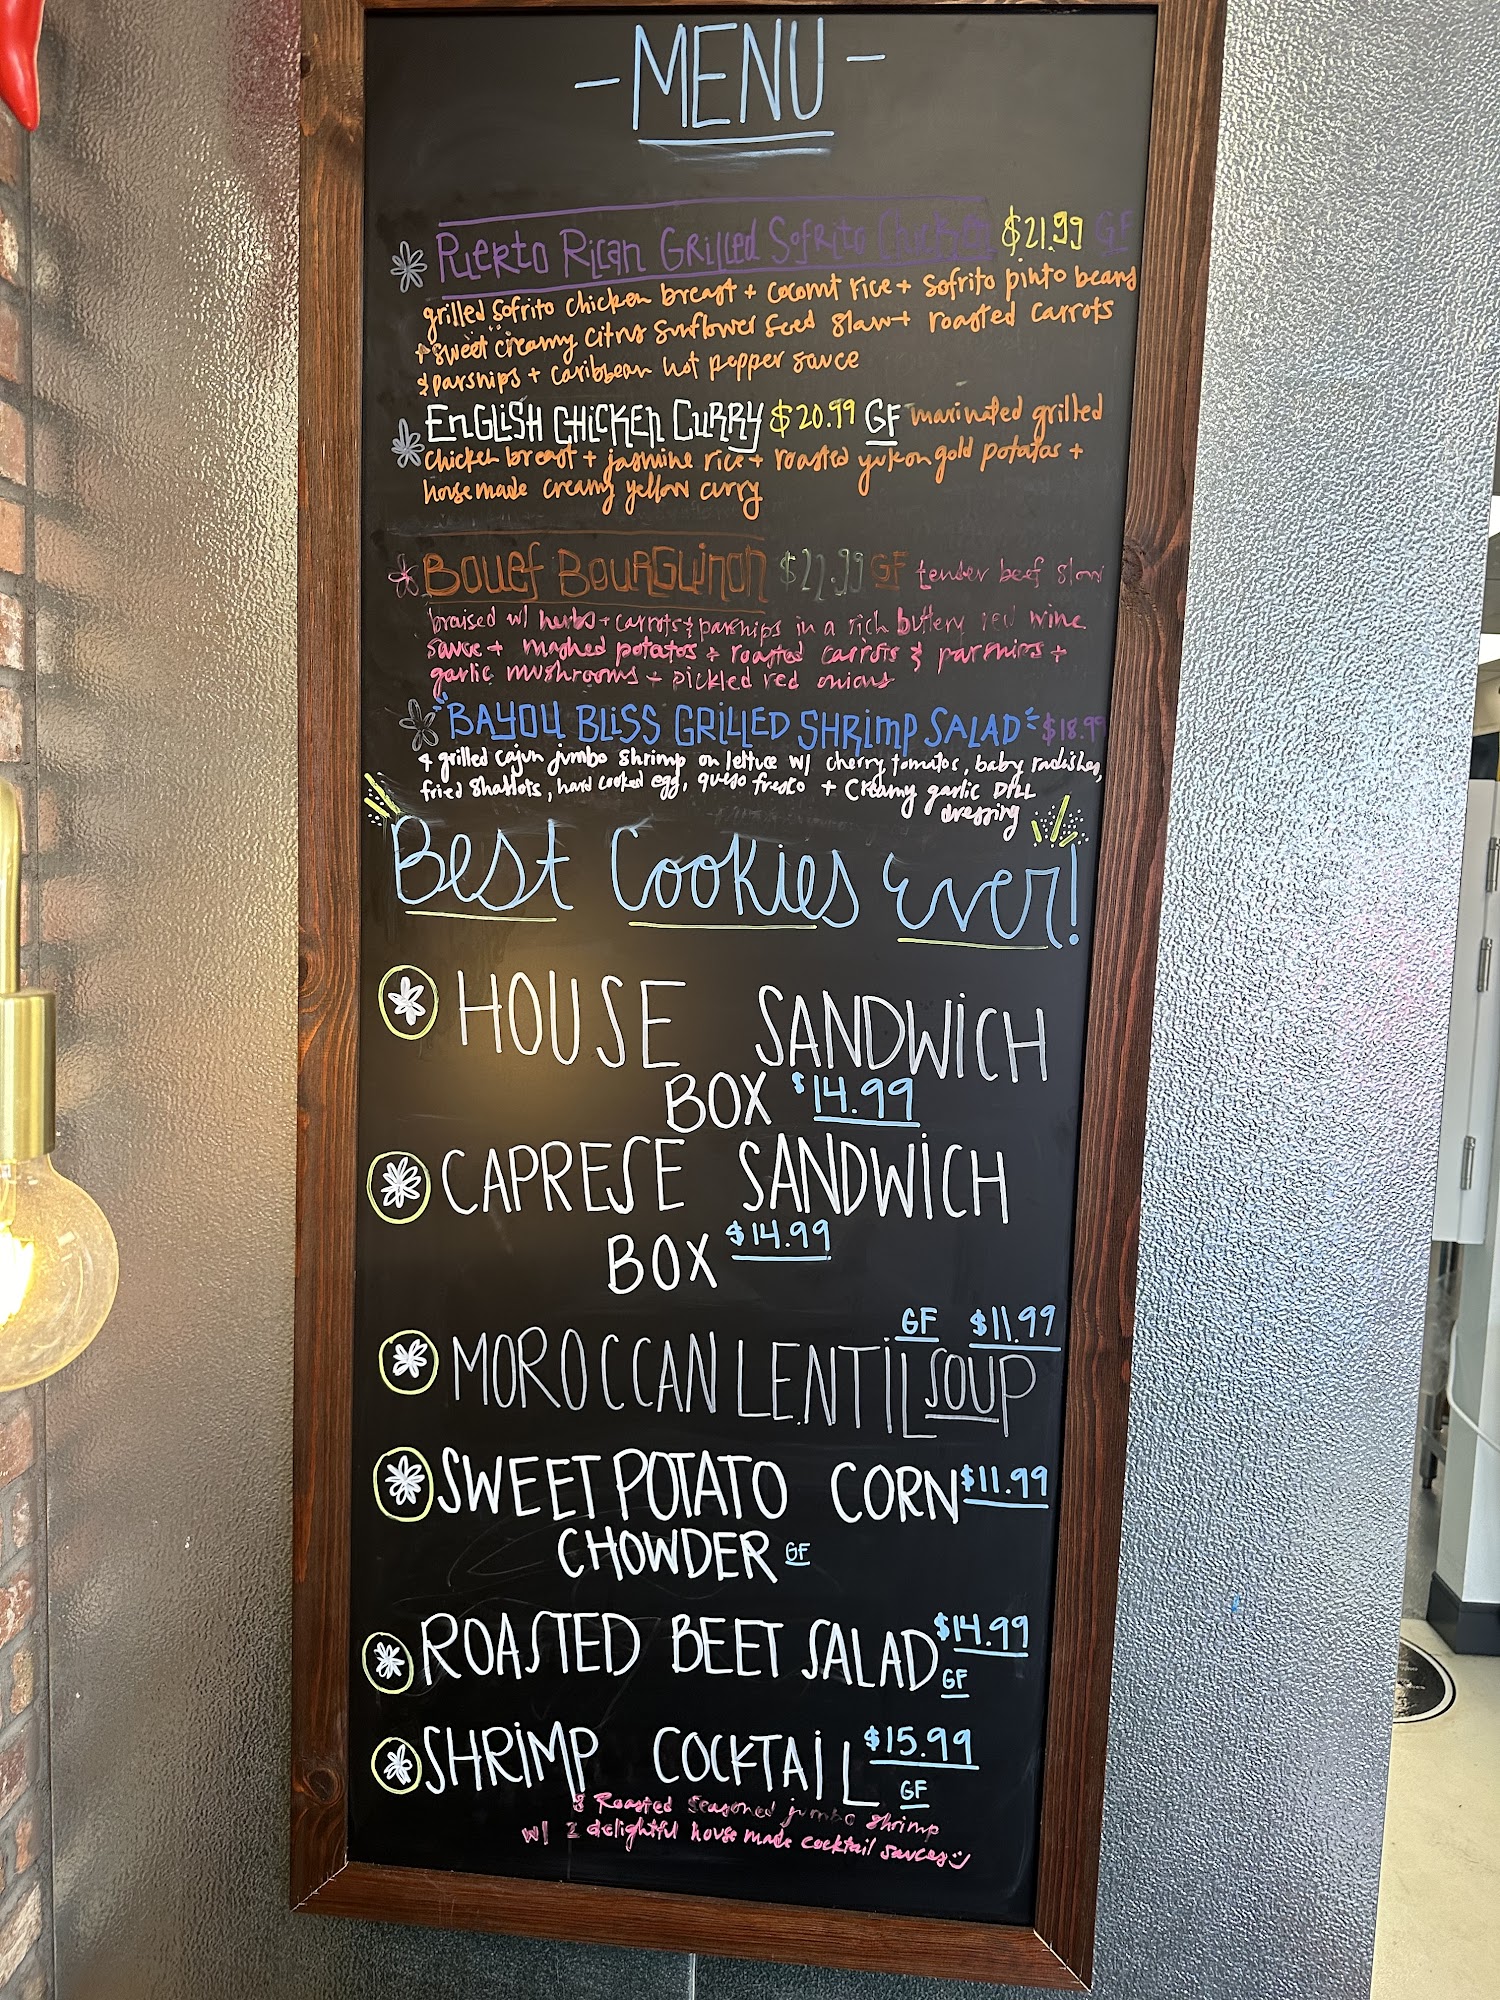 - MENU -
Puerto Rican Grilled Sofrito Chicken $21.99 GF
grilled sofrito chicken breast + coconut rice + sofrito pinto beans
+ sweet creamy citrus sunflower seed slaw + roasted carrots
& parsnips + caribbean hot pepper sauce
ENGLISH CHICKEN CURRY $20.99 GF marinated grilled
chicken breast + jasmine rice + roasted yukon gold potatoes +
housemade creamy yellow curry
Bouef Bourguinon $22.99 GF tender beef slow
braised w/ herbs + carrots & parsnips in a rich buttery red wine
sauce + mashed potatoes + roasted carrots & parsnips +
garlic mushrooms + pickled red onions
"BAYOU BLISS GRILLED SHRIMP SALAD" $18.99
4 grilled cajun jumbo shrimp on lettuce w/ cherry tomatoes, baby radishes,
fried shallots, hard cooked egg, queso fresco + creamy garlic DILL
dressing
Best Cookies Ever!
HOUSE SANDWICH
BOX $14.99
CAPRESE SANDWICH
BOX $14.99
GF $11.99
MOROCCAN LENTIL SOUP
SWEET POTATO CORN $11.99
CHOWDER GF
ROASTED BEET SALAD $14.99
GF
SHRIMP COCKTAIL $15.99
GF
8 Roasted seasoned jumbo shrimp
w/ 2 delightful house made cocktail sauces :)